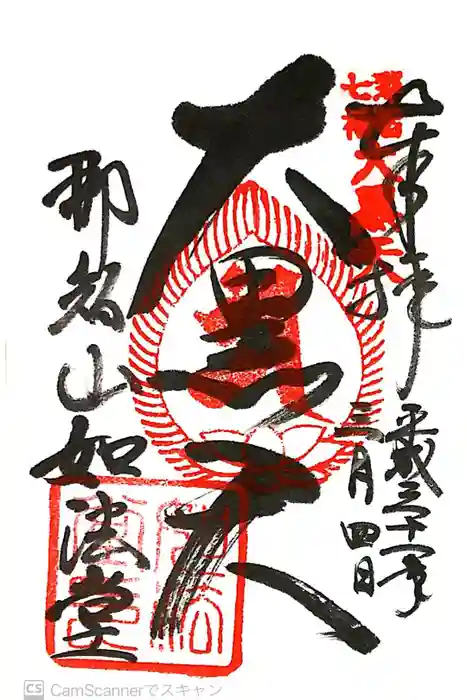 奉拝
平成三十一年
三月四日
大黒天
大黒天
那智山如法堂
CS CamScannerでスキャン